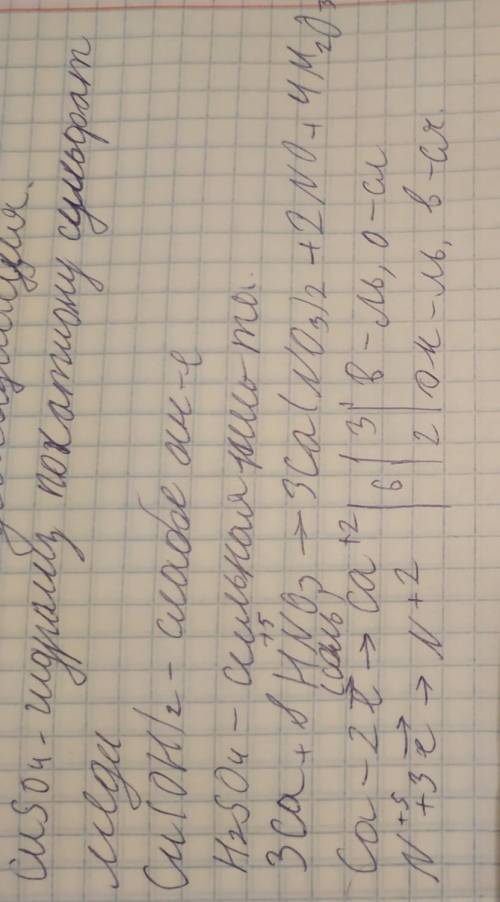 CuSO4 - гидролиз по катиону сульфат
меди
Cu(OH)2 - слабое
H2SO4 - сильная кислота.
3Ca + 8 HN⁺⁵O3 → 3Ca(NO3)2 + 2NO + 4H2O
(соль)
Ca - 2e → Ca⁺² | 6 | 3 | в-ль, о-сл
N⁺⁵ + 3e → N+2 | | 2 | ок-ль, в-сл.